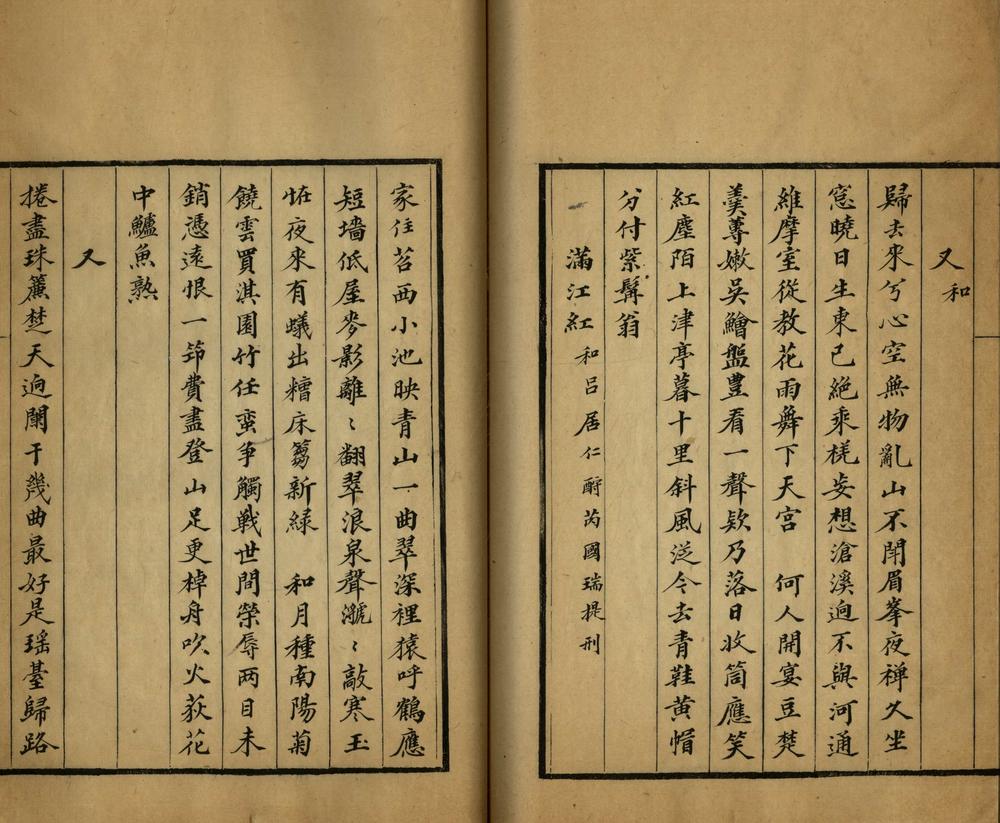 又和
歸去來兮心空無物亂山不閉眉峯夜禅久坐
窓曉日生東已絶乘槎妄想滄溪逈不與河通
維摩室從教花雨舞下天宫　何人開宴豆楚
羮蓴嫩吳鱠盤豊看一聲欸乃落日收筒應笑
紅塵陌上津亭暮十里斜風従今去青鞋黄帽
分付紫髯翁
滿江紅和吕居仁酧芮國瑞提刑
家住苕西小池映青山一曲翠深裡猿呼鶴應
短墻低屋麥影離〻翻翠浪泉聲㶁〻敲寒玉
恠夜來有蟻出糟床蒭新緑　和月種南陽菊
饒雲買淇園竹任蛮争觸戦世間榮辱两目未
銷憑遠恨一筇費盡登山足更棹舟吹火荻花
中鱸魚熟
又
捲盡珠簾楚天逈闌干幾曲最好是瑶䑓歸路